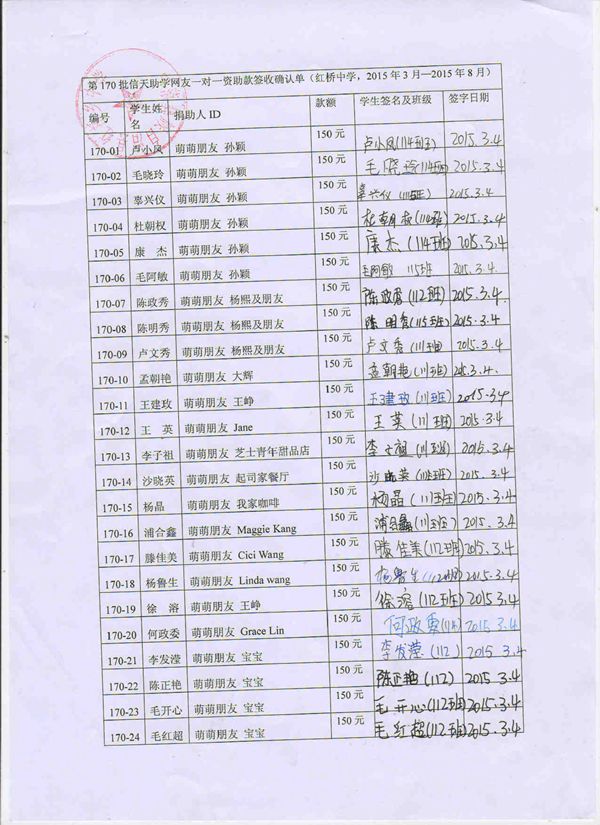 第170批信天助学网友一对一资助款签收确认单（红桥中学，2015年3月—2015年8月）
编号 学生姓名 捐助人ID 款额 学生签名及班级 签字日期
170-01 卢小凤 萌萌朋友 孙颖 150元 卢小凤(114班) 2015.3.4
170-02 毛晓玲 萌萌朋友 孙颖 150元 毛晓玲(114班) 2015.3.4
170-03 辜兴仪 萌萌朋友 孙颖 150元 辜兴仪(111班) 2015.3.4
170-04 杜朝权 萌萌朋友 孙颖 150元 杜朝权(114班) 2015.3.4
170-05 康 杰 萌萌朋友 孙颖 150元 康杰(114班) 2015.3.4
170-06 毛阿敏 萌萌朋友 孙颖 150元 毛阿敏 115班 2015.3.4
170-07 陈政秀 萌萌朋友 杨熙及朋友 150元 陈政秀(112班) 2015.3.4
170-08 陈明秀 萌萌朋友 杨熙及朋友 150元 陈明秀(115班) 2015.3.4
170-09 卢文秀 萌萌朋友 杨熙及朋友 150元 卢文秀(111班) 2015.3.4
170-10 孟朝艳 萌萌朋友 大辉 150元 孟朝艳(111班) 2015.3.4
170-11 王建玫 萌萌朋友 王峥 150元 王建玫(111班) 2015.3.4
170-12 王 英 萌萌朋友 Jane 150元 王英(111班) 2015.3.4
170-13 李子祖 萌萌朋友 芝士青年甜品店 150元 李子祖(111班) 2015.3.4
170-14 沙晓英 萌萌朋友 起司家餐厅 150元 沙晓英 2015.3.4
170-15 杨晶 萌萌朋友 我家咖啡 150元 杨晶(111班) 2015.3.4
170-16 浦合鑫 萌萌朋友 Maggie Kang 150元 浦合鑫(111班) 2015.3.4
170-17 滕佳美 萌萌朋友 Cici Wang 150元 滕佳美(112班) 2015.3.4
170-18 杨鲁生 萌萌朋友 Linda wang 150元 杨鲁生(112班) 2015.3.4
170-19 徐 溶 萌萌朋友 王峥 150元 徐溶(112班) 2015.3.4
170-20 何政委 萌萌朋友 Grace Lin 150元 2015.3.4
170-21 李发滢 萌萌朋友 宝宝 150元 李发滢(112) 2015.3.4
170-22 陈正艳 萌萌朋友 宝宝 150元 陈正艳(112) 2015.3.4
170-23 毛开心 萌萌朋友 宝宝 150元 毛开心(112班) 2015.3.4
170-24 毛红超 萌萌朋友 宝宝 150元 毛红超(112班) 2015.3.4